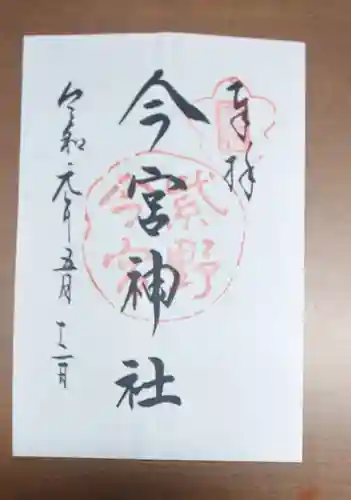 奉拝
今宮神社
紫野
今宮
令和元年五月十二日